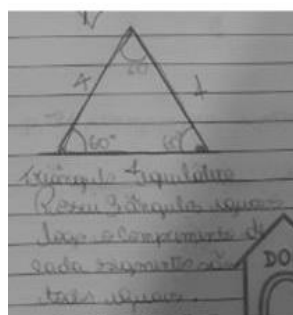 60
4
60°
60°
Triângulo Equilátero
Possui 3 ângulos iguais
logo o comprimento de
cada segmento são
iguais.
DO